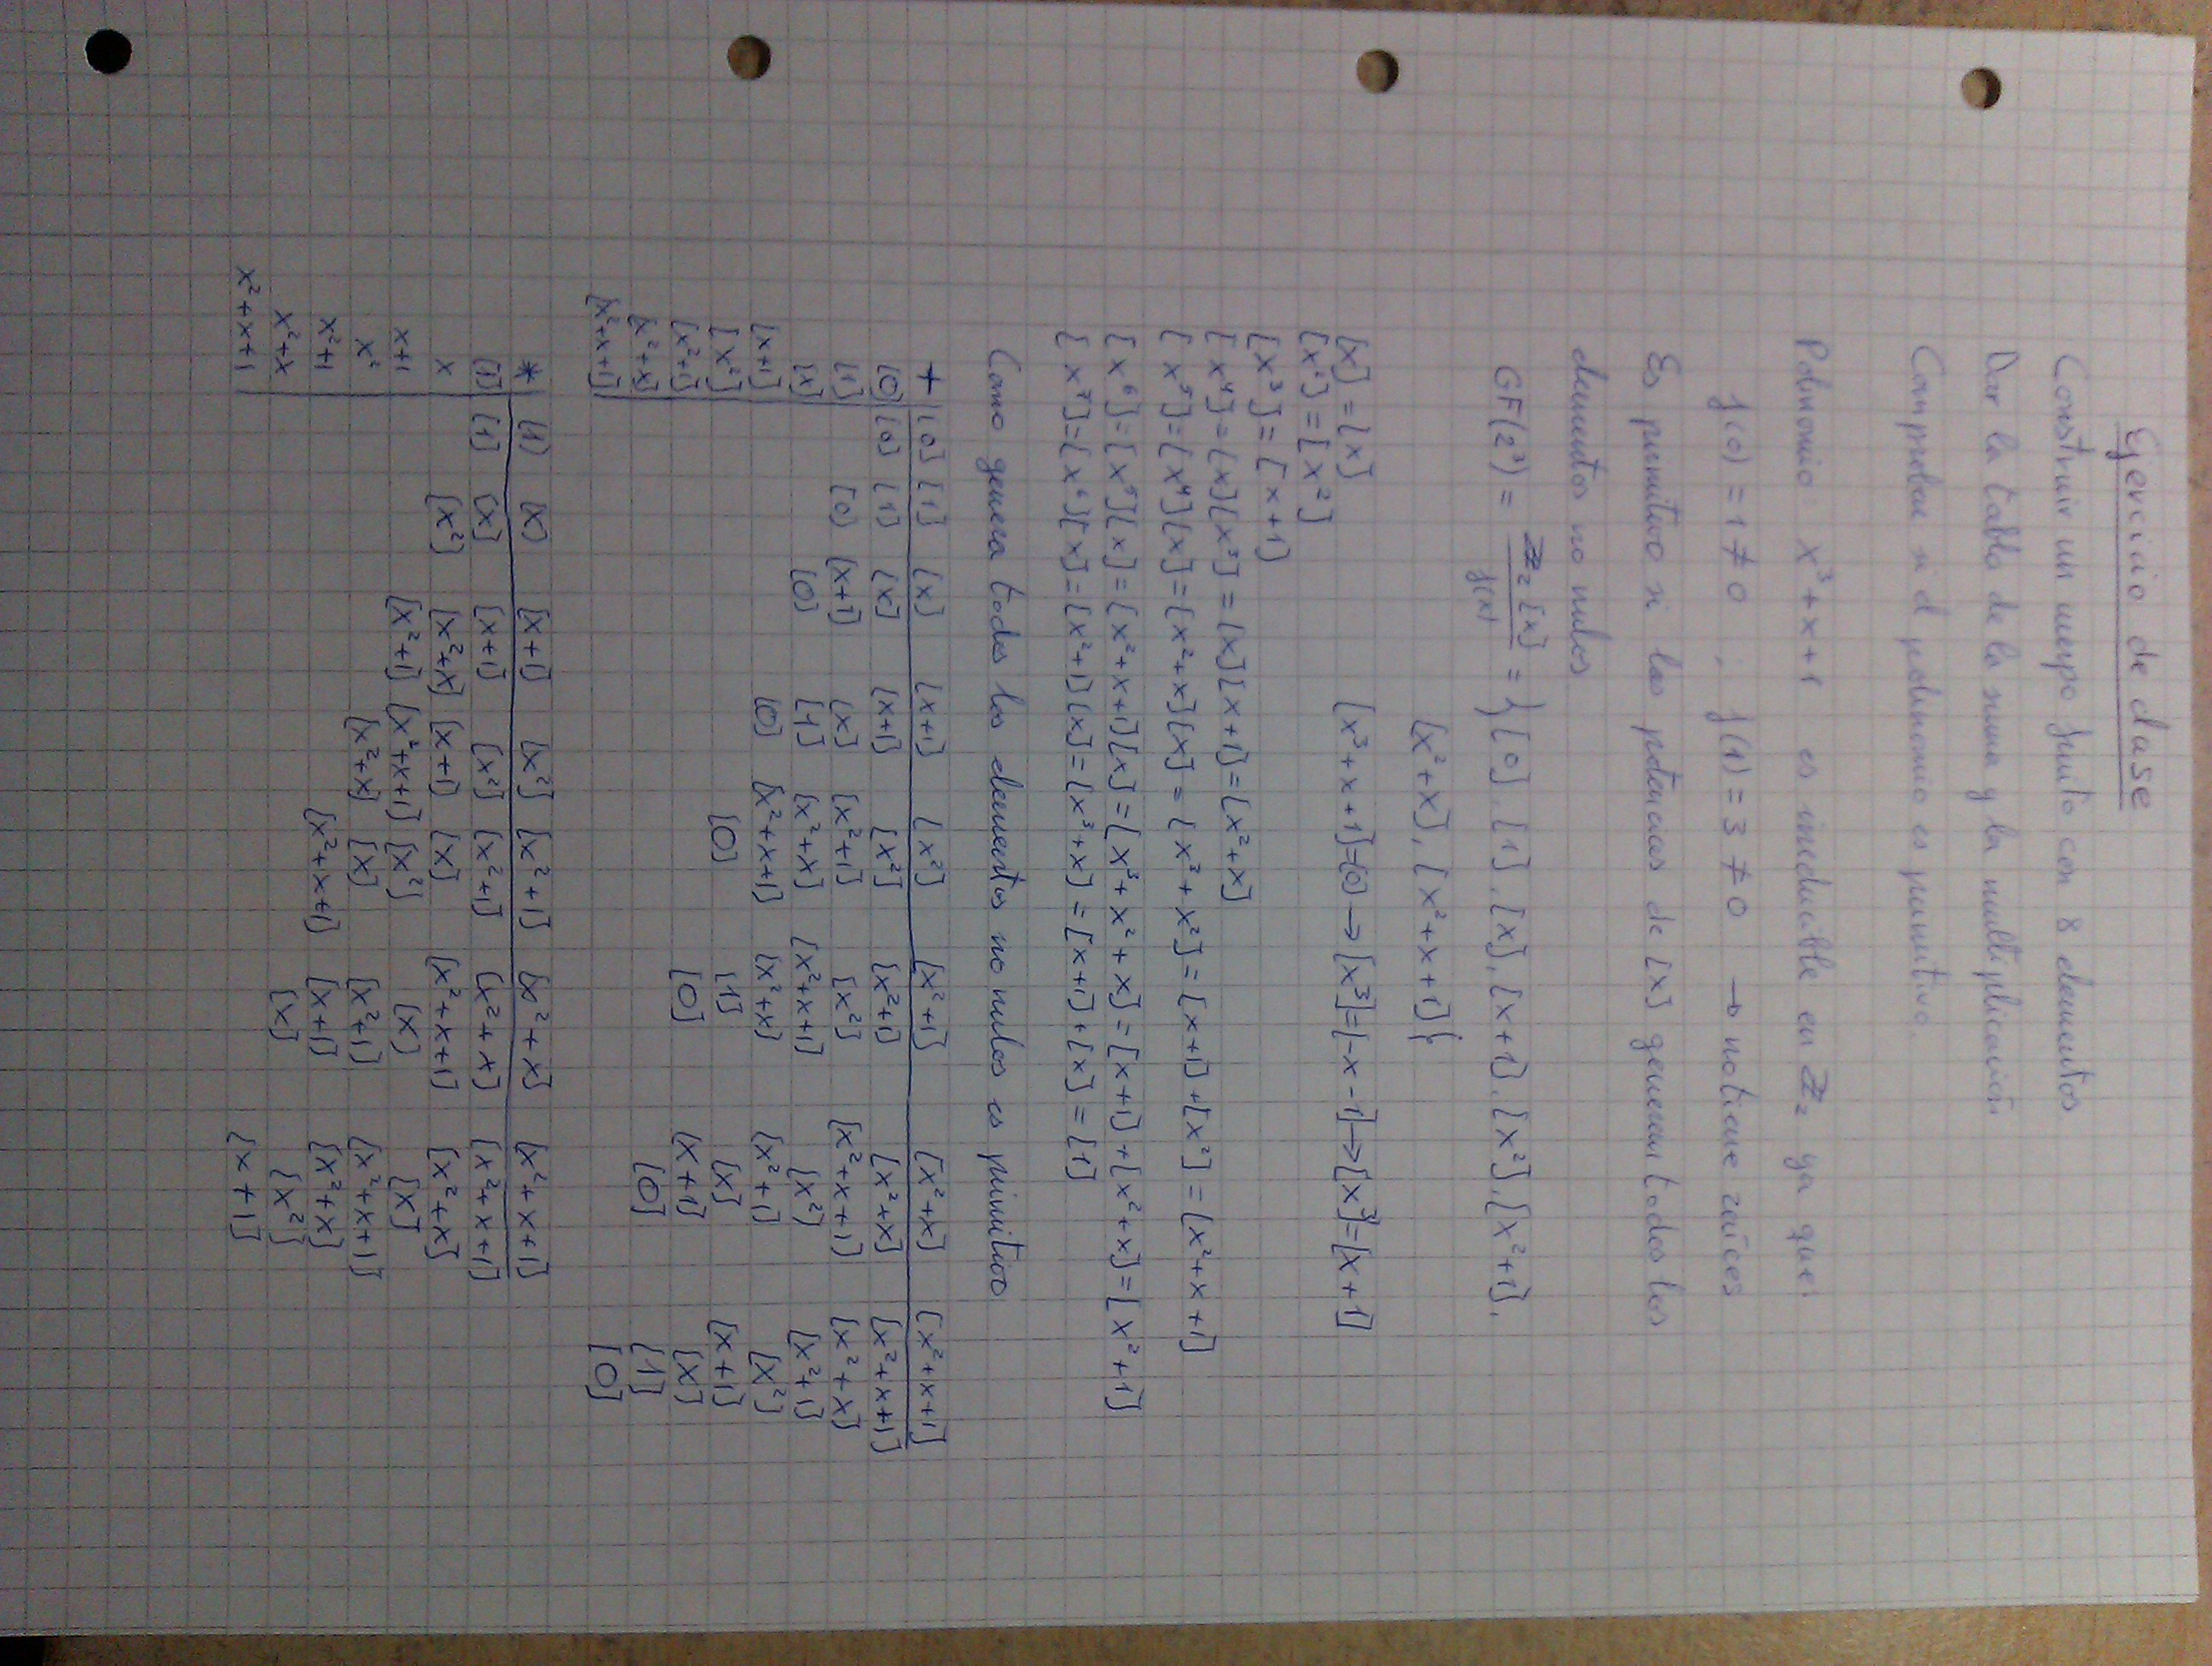 Ejercicio de clase
Construir un cuerpo finito con 8 elementos.
Dar la tabla de la suma y la multiplicación
Comprobar si el polinomio es primitivo.
Polinomio x³+x+1 es irreducible en ℤ₂ ya que:
f(0) = 1 ≠ 0 ; f(1) = 3 ≠ 0 → no tiene raíces
Es primitivo si las potencias de [x] generan todos los
elementos no nulos.
GF(2³) = ℤ₂[x] / f(x) = {[0], [1], [x], [x+1], [x²], [x²+1],
[x²+x], [x²+x+1]}
[x] = [x] [x³+x+1]=[0] → [x³]=[-x-1] → [x³]=[x+1]
[x²] = [x²]
[x³] = [x+1]
[x⁴] = [x][x³] = [x][x+1] = [x²+x]
[x⁵] = [x⁴][x] = [x²+x][x] = [x³+x²] = [x+1]+[x²] = [x²+x+1]
[x⁶] = [x⁵][x] = [x²+x+1][x] = [x³+x²+x] = [x+1]+[x²+x] = [x²+1]
[x⁷] = [x⁶][x] = [x²+1][x] = [x³+x] = [x+1]+[x] = [1]
Como genera todos los elementos no nulos es primitivo
+ [0] [1] [x] [x+1] [x²] [x²+1] [x²+x] [x²+x+1]
[0] [0] [1] [x] [x+1] [x²] [x²+1] [x²+x] [x²+x+1]
[1] [0] [x+1] [x] [x²+1] [x²] [x²+x+1] [x²+x]
[x] [0] [1] [x²+x] [x²+x+1] [x²] [x²+1]
[x+1] [0] [x²+x+1] [x²+x] [x²+1] [x²]
[x²] [0] [1] [x] [x+1]
[x²+1] [0] [x+1] [x]
[x²+x] [0] [1]
[x²+x+1] [0]
* [1] [x] [x+1] [x²] [x²+1] [x²+x] [x²+x+1]
[1] [1] [x] [x+1] [x²] [x²+1] [x²+x] [x²+x+1]
x [x²] [x²+x] [x+1] [x] [x²+x+1] [x²+x]
x+1 [x²+1] [x²+x+1] [x²] [x] [x]
x² [x²+x] [x] [x²+1] [x²+x+1]
x²+1 [x²+x+1] [x+1] [x²+x]
x²+x [x] [x²]
x²+x+1 [x+1]